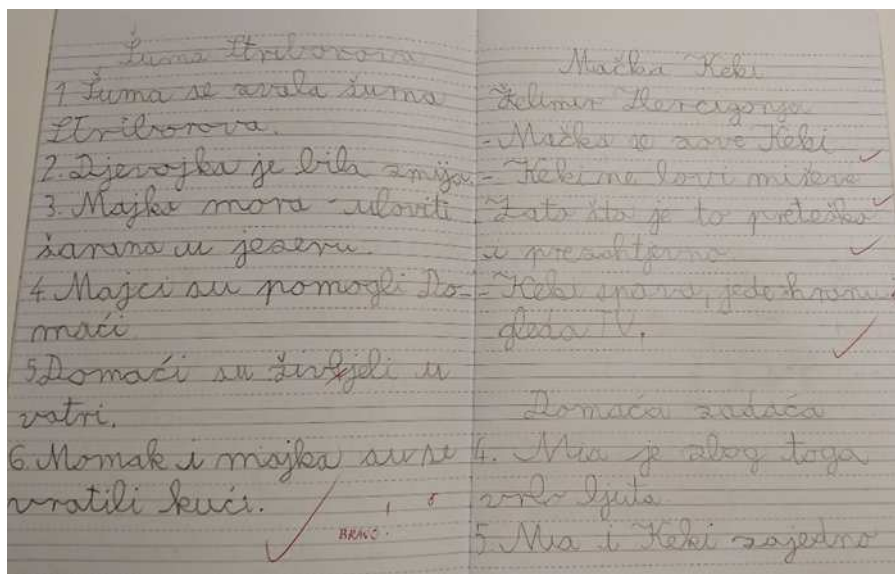 Šuma Striborova
1 Šuma se zvala šuma
Striborova.
2. Djevojka je bila zmija.
3. Majka mora uloviti
šarana u jezeru.
4. Majci su pomogli Do-
maći.
5 Domaći su živjeli u
vatri.
6. Momak i majka su se
vratili kući.
BRAVO!
Mačka Keki
Želimir Hercigonja
- Mačka se zove Keki
- Keki ne lovi miševe
Zato šta je to preteško
i prezahtjevno.
- Keki spava, jede hranu,
gleda TV.
Domaća zadaća
4. Mia je zbog toga
vrlo ljuta.
5. Mia i Keki zajedno